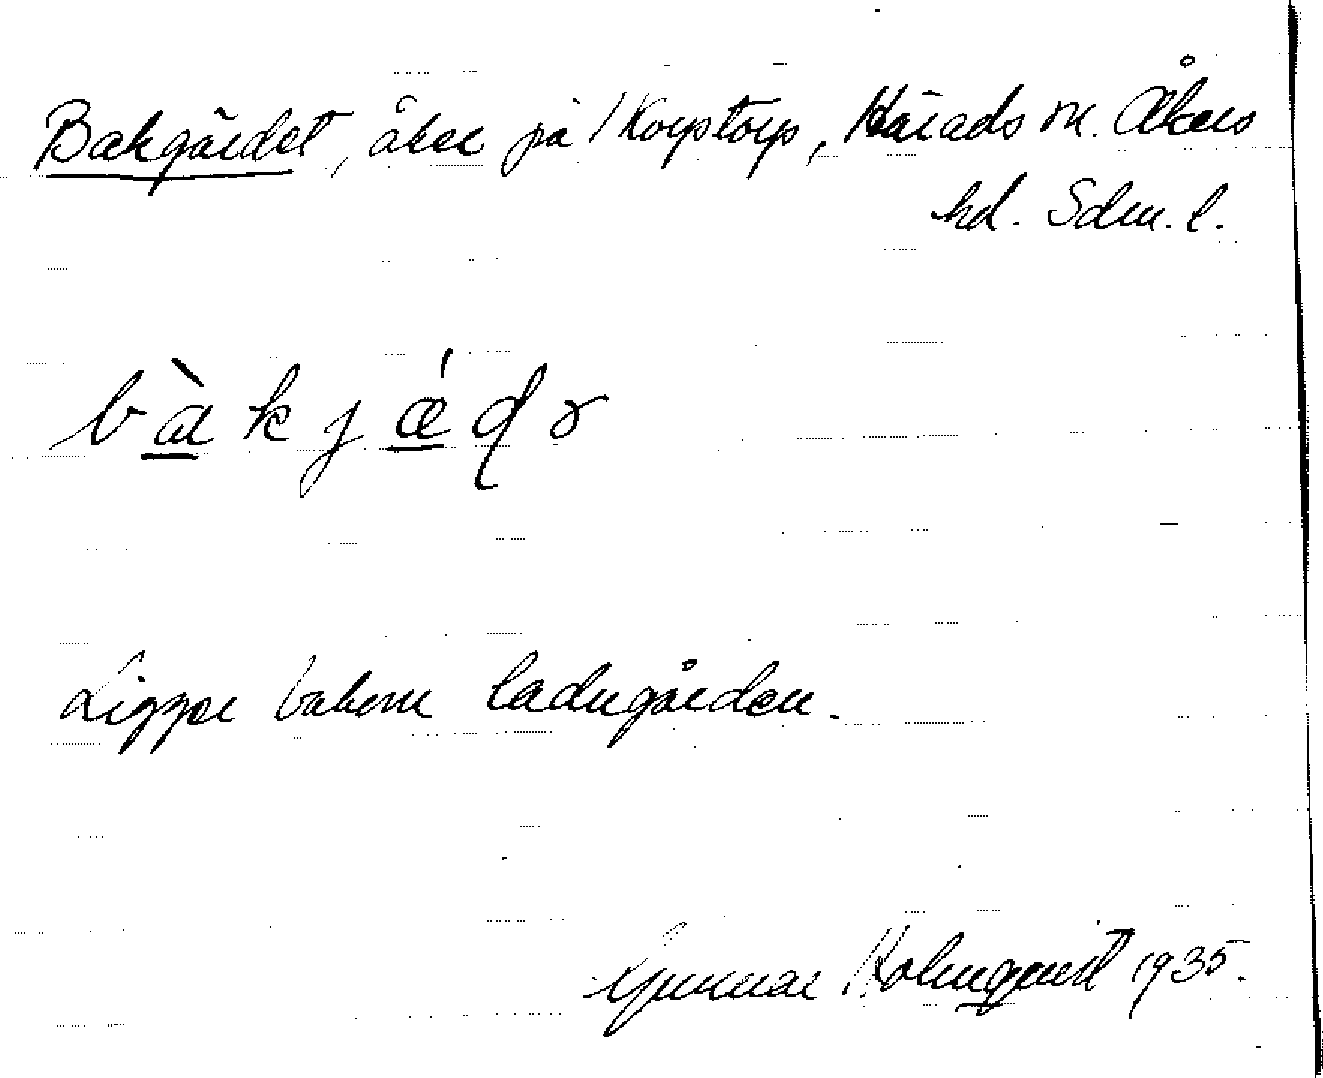 Bakgärdet, åker på Korpstorp, Härads sn. Åkers
hd. Sdm. l.
bàkjǽdɤ
Ligger bakom ladugården.
Gunnar Holmquist 1935.